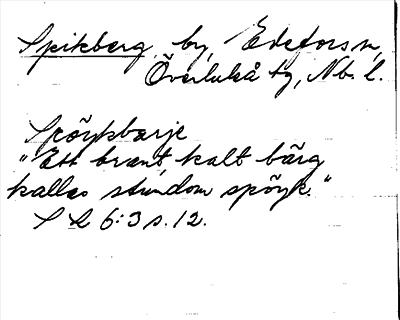 Spikberg, by, Edefors sn,
Överluleå tg, Nb. l.
Spöykbærje
"Ett brant, kalt bärg
kallas stundom spöyk."
S L 6:3 s. 12.